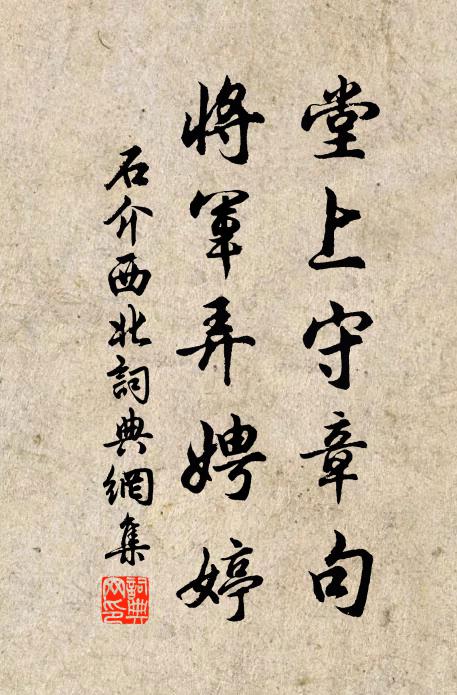 堂上守章句
將軍弄娉婷
石介西北詞典網集
詞典網印